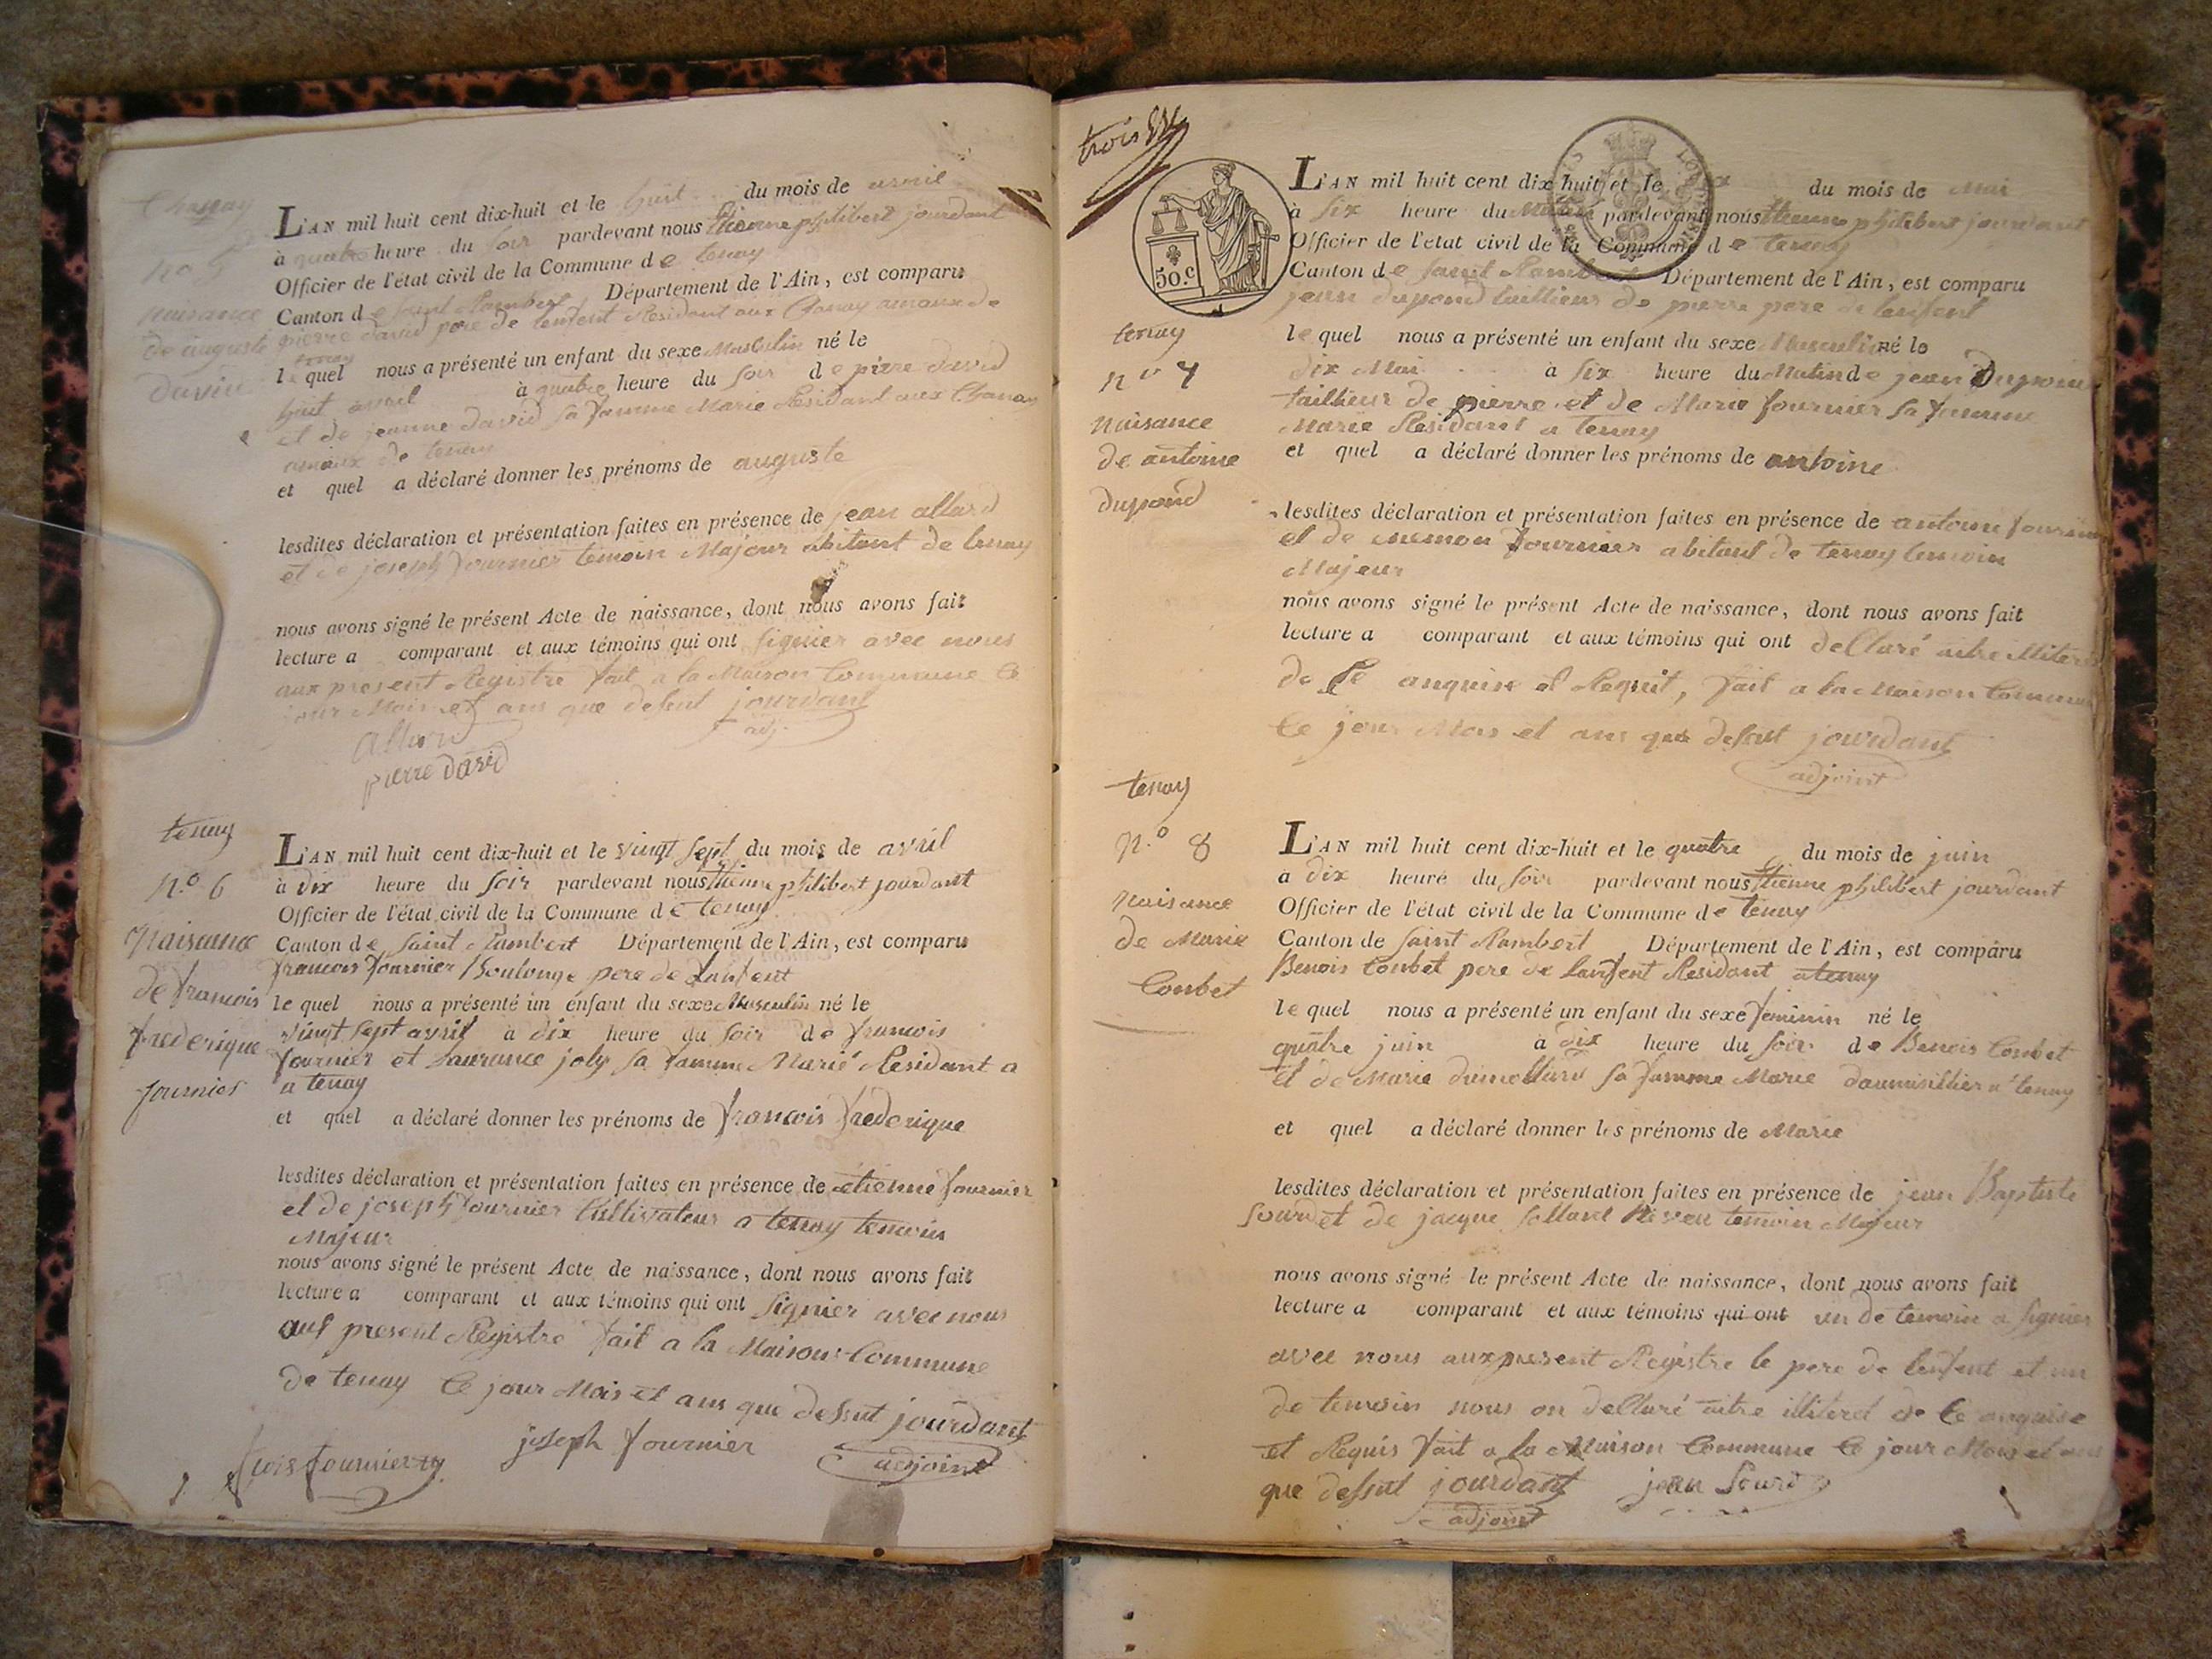 Chanay
naisance
de auguste
david
L'AN mil huit cent dix-huit et le huit du mois de avril
à quatre heure du soir pardevant nous Etienne philibert jourdant
Officier de l'état civil de la Commune de tenay
Canton de saint Rambert Département de l'Ain, est comparu
pierre david pere de lenfent Residant aux Chanay amaux de
tenay
le quel nous a présenté un enfant du sexe Masculin né le
huit avril à quatre heure du soir de pierre david
et de jeanne david sa famme Marie Residant aux Chanay
amaux de tenay
et quel a déclaré donner les prénoms de auguste
lesdites déclaration et présentation faites en présence de jean allard
et de joseph fournier temoin Majeur abitant de tenay
nous avons signé le présent Acte de naissance, dont nous avons fait
lecture a comparant et aux témoins qui ont signier avec nous
aux present Registre fait a la Maison Commune le
jour Mois et ans que dessut jourdant
adj.
allard
pierre david
tenay
n.º 6
Naisance
de francois
frederique
fournier
L'AN mil huit cent dix-huit et le vingt sept du mois de avril
à dix heure du soir pardevant nous Etienne philibert jourdant
Officier de l'état civil de la Commune de tenay
Canton de saint Rambert Département de l'Ain, est comparu
francois fournier Boulonge pere de lanfent
le quel nous a présenté un enfant du sexe Masculin né le
vingt sept avril à dix heure du soir de francois
fournier et laurance joly sa famme Marié Residant a
a tenay
et quel a déclaré donner les prénoms de francois frederique
lesdites déclaration et présentation faites en présence de etienne fournier
et de joseph fournier Cultivateur a tenay temoin
Majeur
nous avons signé le présent Acte de naissance, dont nous avons fait
lecture a comparant et aux témoins qui ont signier avec nous
aux present Registre fait a la Maison Commune
de tenay le jour Mois et ans que dessut jourdant
adjoint
fcois fournier
joseph fournier
trois
50.C
tenay
nº 7
naisance
de antoine
dupond
L'AN mil huit cent dix-huit et le dix du mois de Mai
à six heure du Matin pardevant nous Etienne philibert jourdant
Officier de l'etat civil de la Commune de tenay
Canton de saint Rambert Département de l'Ain, est comparu
jean dupond taillieur de pierre pere de lenfent
le quel nous a présenté un enfant du sexe Masculin né le
dix Mai à six heure du Matin de jean Dupond
taillieur de pierre et de Marie fournier sa famme
Marie Residant a tenay
et quel a déclaré donner les prénoms de antoine
lesdites déclaration et présentation faites en présence de antoine fournier
et de fournier abitant de tenay temoin
Majeur
nous avons signé le présent Acte de naissance, dont nous avons fait
lecture a comparant et aux témoins qui ont dellaré aitre
de Ce anquise et Requit, fait a la Maison Commune
Ce jour Mois et ans que dessut jourdant
adjoint
tenay
N.º 8
Naisance
de Marie
Combet
L'AN mil huit cent dix-huit et le quatre du mois de juin
à dix heure du soir pardevant nous Etienne philibert jourdant
Officier de l'état civil de la Commune de tenay
Canton de saint Rambert Département de l'Ain, est comparu
Benois Combet pere de lanfent Residant a tenay
le quel nous a présenté un enfant du sexe feminin né le
quatre juin à dix heure du soir de Benois Combet
et de Marie dumollard sa famme Marie daumisillier a tenay
et quel a déclaré donner les prénoms de Marie
lesdites déclaration et présentation faites en présence de jean Baptiste
sourd et de jacque temoin Majeur
nous avons signé le présent Acte de naissance, dont nous avons fait
lecture a comparant et aux témoins qui ont un de temoin a signier
avec nous aux present Registre le pere de lenfent et un
de temoin nous on dellaré aitre illiteret de Ce anquise
et Requis fait a la Maison Commune le jour Mois et ans
que dessut jourdant jean Sourd
adjoint